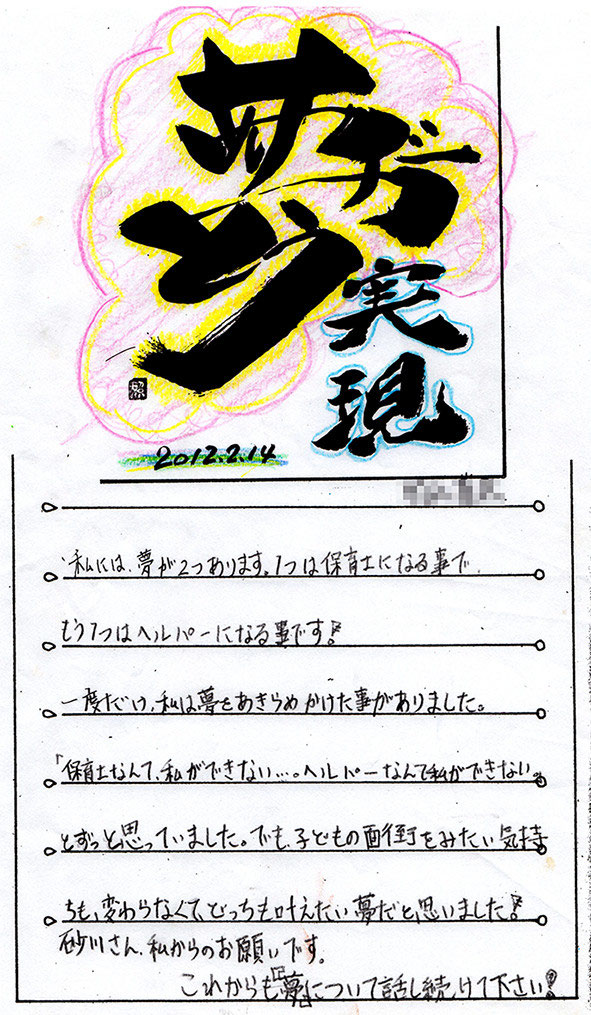 実現
2012.2.14
私には、夢が2つあります。1つは保育士になる事で、
もう1つはヘルパーになる事です!
一度だけ、私は夢をあきらめかけた事がありました。
「保育士なんて、私ができない…。ヘルパーなんて私ができない。」
とずっと思っていました。でも、子どもの面倒をみたい気持
ちも、変わらなくて、どっちも叶えたい夢だと、思いました!
砂川さん、私からのお願いです。
これからも「夢」について話し続けて下さい!